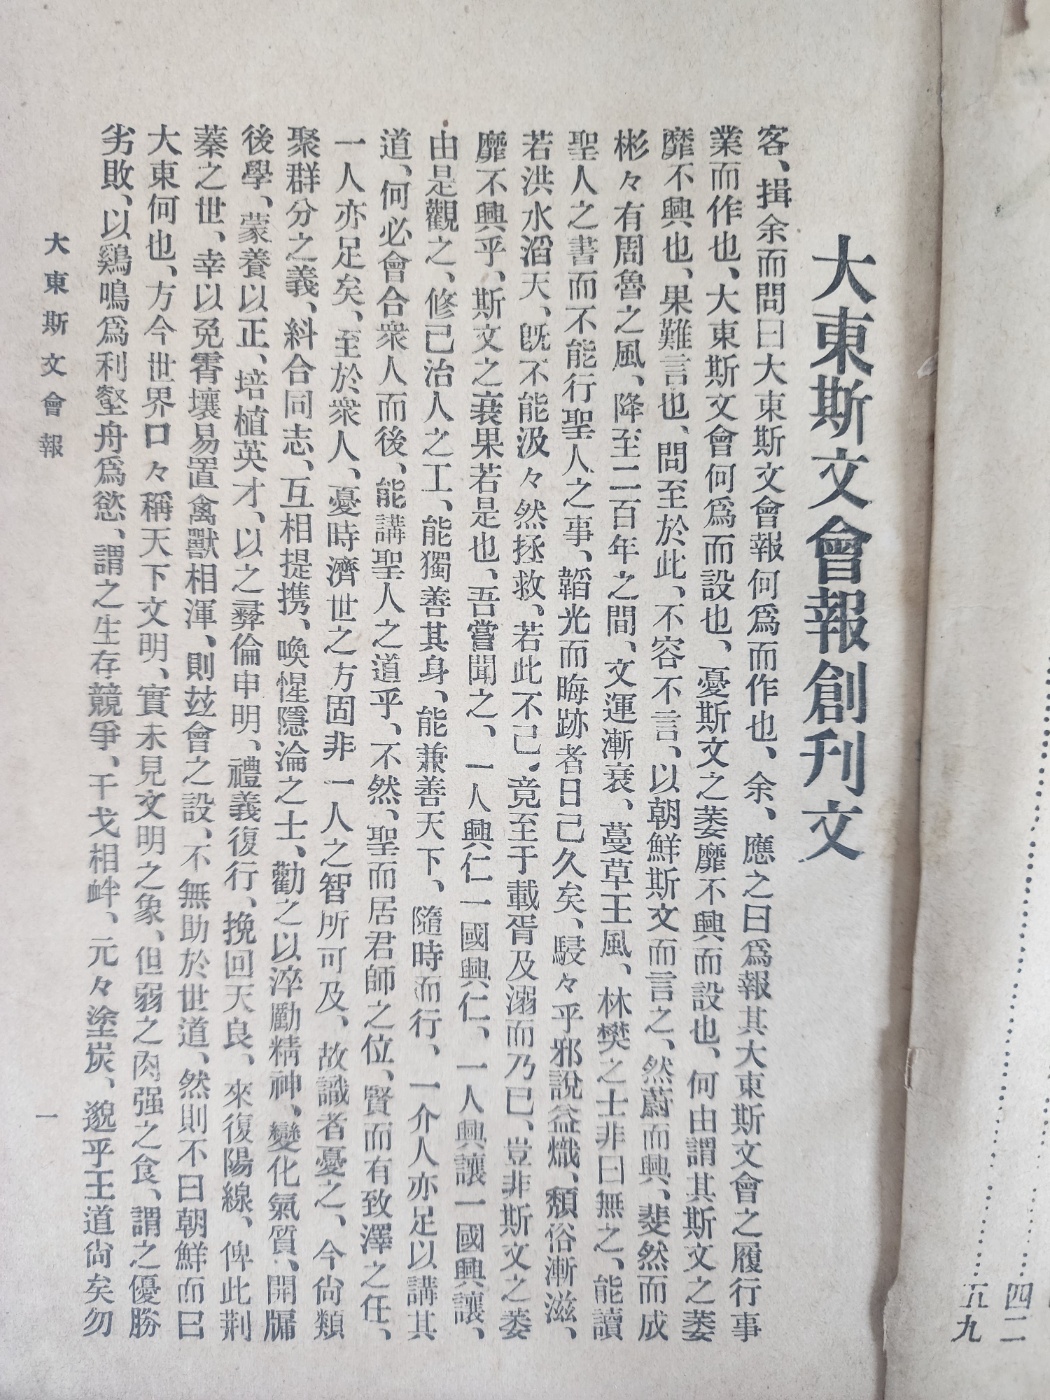 四二
五九
大東斯文會報創刊文
客、揖余而問曰大東斯文會報何爲而作也、余、應之曰爲報其大東斯文會之履行事
業而作也、大東斯文會何爲而設也、憂斯文之萎靡不興而設也、何由謂其斯文之萎
靡不興也、果難言也、問至於此、不容不言、以朝鮮斯文而言之、然蔚而興、斐然而成
彬々有周魯之風、降至二百年之間、文運漸衰、蔓草王風、林樊之士非曰無之、能讀
聖人之書而不能行聖人之事、韜光而晦跡者日已久矣、駸々乎邪說益熾、頹俗漸滋、
若洪水滔天、旣不能汲々然拯救、若此不已、竟至于載胥及溺而乃已、豈非斯文之萎
靡不興乎、斯文之衰果若是也、吾嘗聞之、一人興仁一國興仁、一人興讓一國興讓、
由是觀之、修已治人之工、能獨善其身、能兼善天下、隨時而行、一介人亦足以講其
道、何必會合衆人而後、能講聖人之道乎、不然、聖而居君師之位、賢而有致澤之任、
一人亦足矣、至於衆人、憂時濟世之方固非一人之智所可及、故識者憂之、今尙類
聚群分之義、糾合同志、互相提携、喚惺隱淪之士、勸之以淬勵精神、變化氣質、開牖
後學、蒙養以正、培植英才、以之彛倫申明、禮義復行、挽回天良、來復陽線、俾此荆
蓁之世、幸以免霄壤易置禽獸相渾、則玆會之設、不無助於世道、然則不曰朝鮮而曰
大東何也、方今世界口々稱天下文明、實未見文明之象、但弱之肉强之食、謂之優勝
劣敗、以鷄鳴爲利壑舟爲慾、謂之生存競爭、干戈相衅、元々塗炭、邈乎王道尙矣勿
大東斯文會報
一